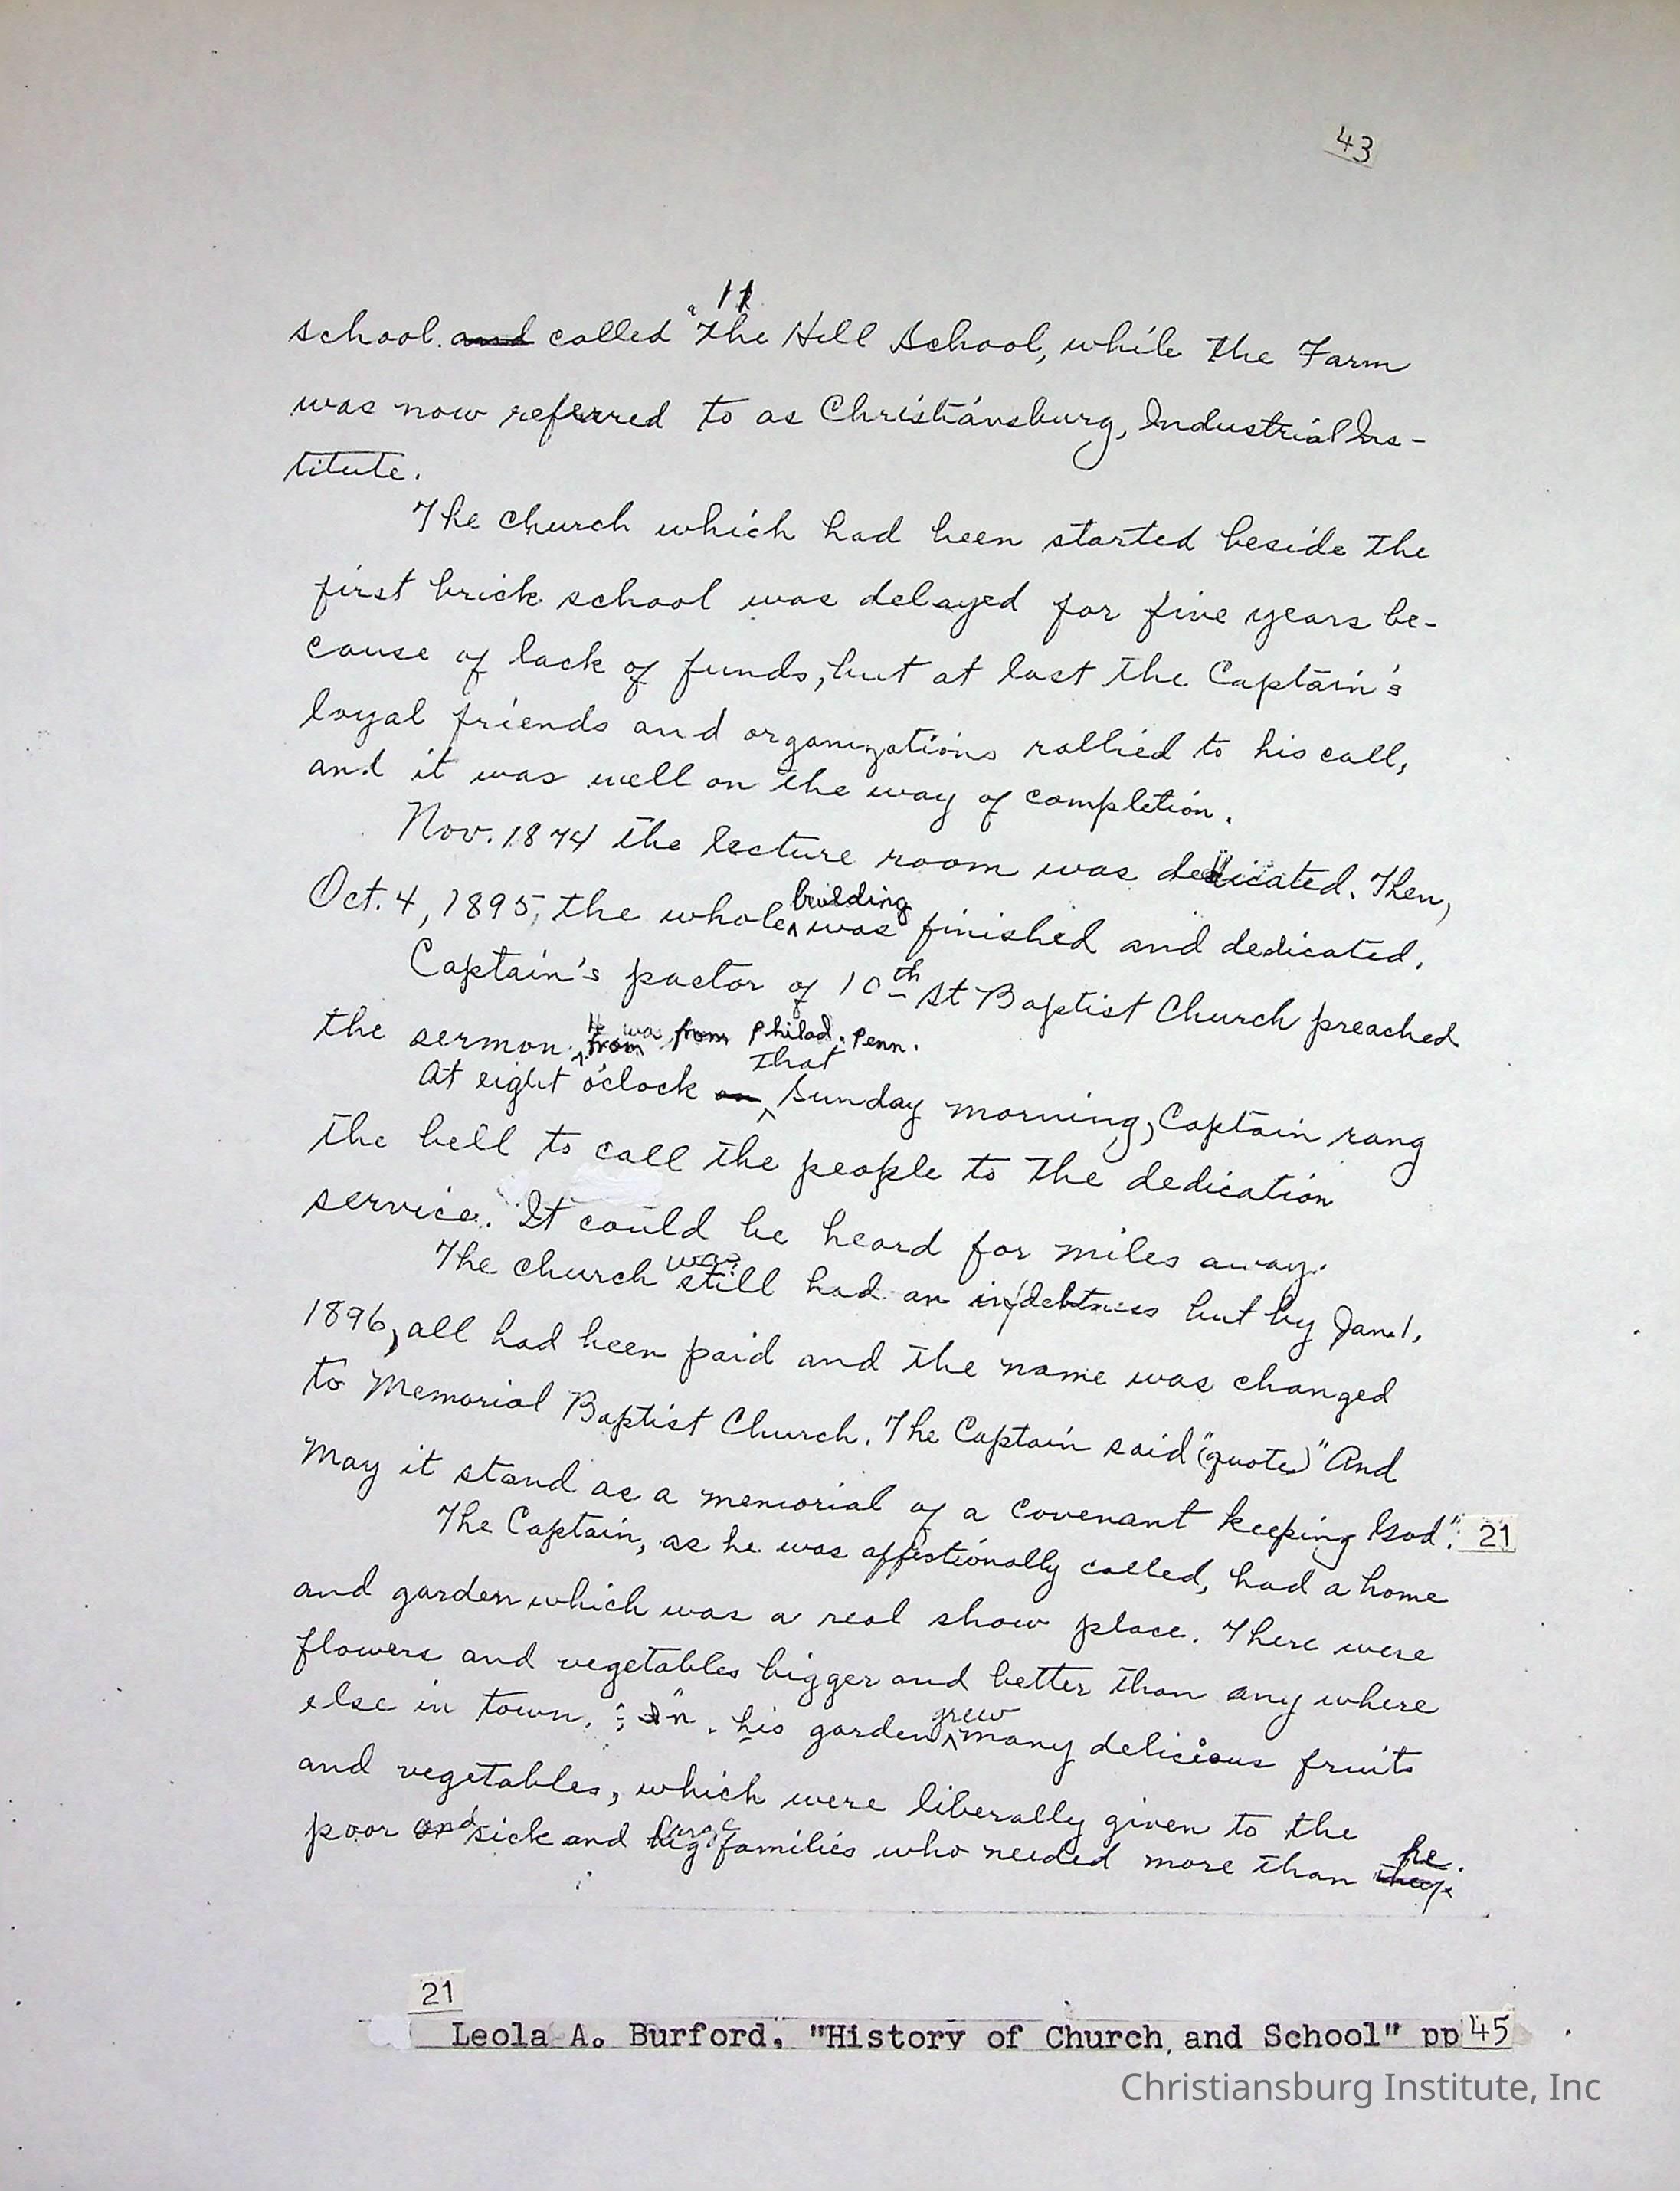 43
11
school. and called "The Hill School, while the Farm
was now referred to as Christiansburg, Industrial Ins-
titute.
The church which had been started beside the
first brick school was delayed for five years be-
cause of lack of funds, but at last the Captain's
loyal friends and organizations rallied to his call,
and it was well on the way of completion.
Nov. 1874 the lecture room was dedicated. Then,
building
Oct. 4, 1895, the whole ^ was finished and dedicated.
Captain's pastor of 10th St Baptist Church preached
He was from Philad. Penn.
the sermon. ^ from
that
At eight o'clock on ^ Sunday morning, Captain rang
the bell to call the people to the dedication
service. It could be heard for miles away.
was
The church still had an indebtness but by Jan. 1,
1896, all had been paid and the name was changed
to Memorial Baptist Church. The Captain said "(quote)" And
May it stand as a memorial of a covenant keeping God". 21
The Captain, as he was affectionally called, had a home
and garden which was a real show place. There were
flowers and vegetables bigger and better than any where
grew
else in town. In his garden ^ many delicious fruits
and vegetables, which were liberally given to the
and large he.
poor sick and big families who needed more than they.
21
Leola A. Burford, "History of Church and School" pp 45
Christiansburg Institute, Inc